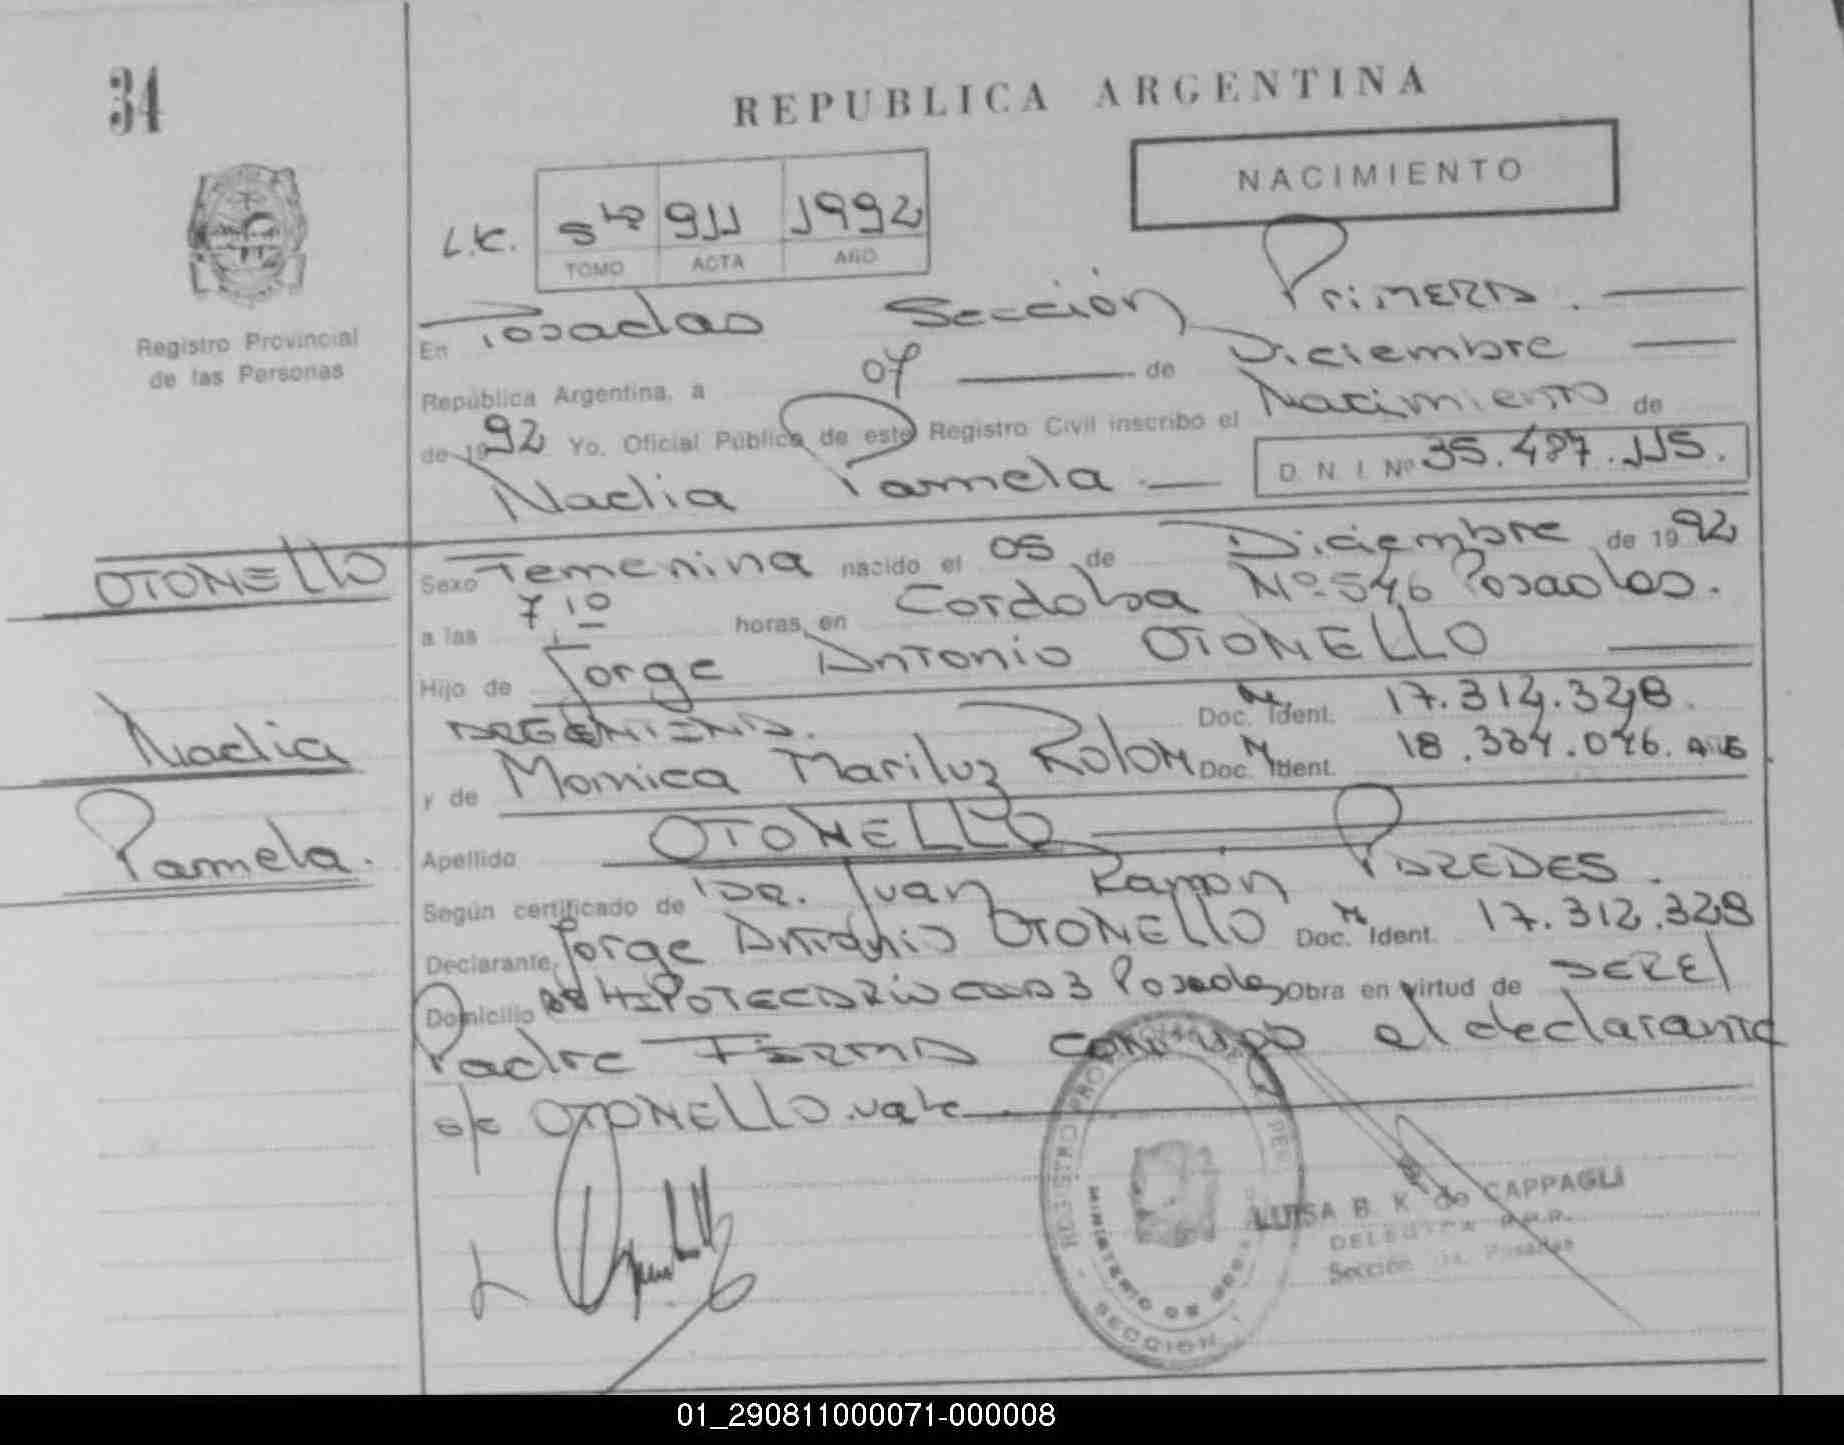 34
REPUBLICA ARGENTINA
NACIMIENTO
L.C. 5to 911 1992
TOMO ACTA AÑO
Registro Provincial
de las Personas
En Posadas Sección Primera.
República Argentina, a 07 de Diciembre
de 1992 Yo, Oficial Público de este Registro Civil inscribo el Nacimiento de
Nadia Pamela. D. N. I. Nº 35.487.115.
OTONELLO
Nadia
Pamela.
Sexo Femenina nacido el 05 de Diciembre de 1992
a las 7,10 horas, en Cordoba Nº 546 Posadas.
Hijo de Jorge Antonio OTONELLO
ARGENTINA. Doc. M. Ident. 17.312.328.
y de Monica Mariluz Rolon Doc. M. Ident. 18.334.046.
Apellido OTONELLO
Según certificado de Dr. Juan Ramón PAREDES.
Declarante, Jorge Antonio OTONELLO Doc. M Ident. 17.312.328
Domicilio HIPOTECARIO casa 3 Posadas Obra en virtud de SER El
Padre FIRMA conmigo el declarante
s/c OTONELLO. vale
REGISTRO PROVINCIAL DE
MINISTERIO DE
SECCION 1
LUISA B. K. de CAPPAGLI
DELEGADA R.P.P.
Sección 1a. Posadas
01_290811000071-000008